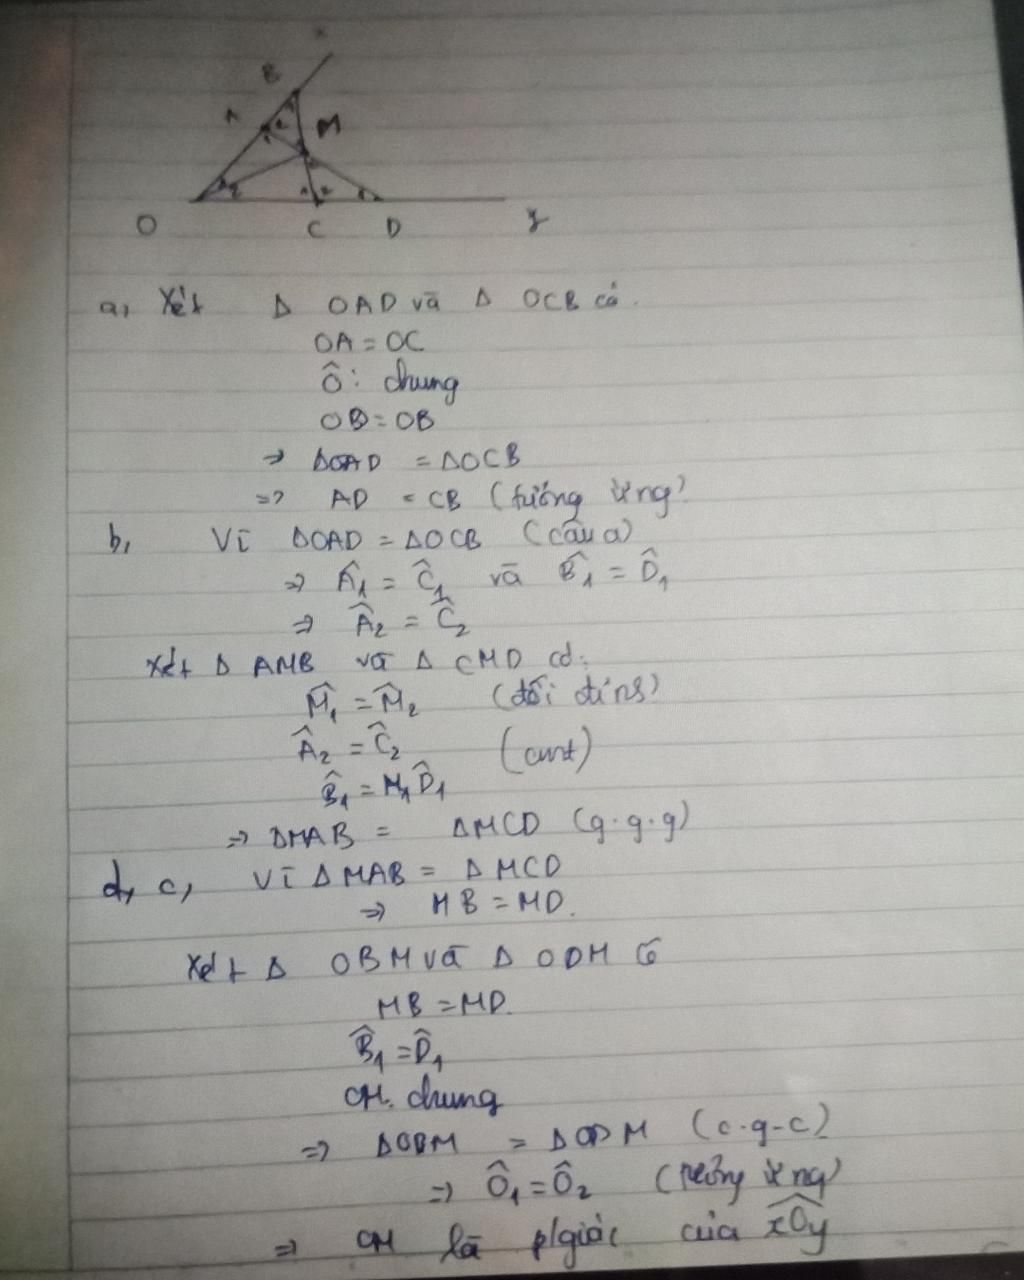 x
B
A
M
O
C
D
y
a, Xét Δ OAD và Δ OCB có.
OA = OC
Ô: chung
OD = OB
=> ΔOAD = ΔOCB
=> AD = CB (tương ứng)
b, Vì ΔOAD = ΔOCB (câu a)
=> Â1 = Ĉ1 và B̂1 = D̂1
=> Â2 = Ĉ2
Xét Δ AMB và Δ CMD có:
M̂1 = M̂2 (đối đỉnh)
Â2 = Ĉ2 (cmt)
B̂1 = D̂1
=> ΔMAB = ΔMCD (g.g.g)
d, c, Vì ΔMAB = ΔMCD
=> MB = MD.
Xét Δ OBM và Δ ODM có
MB = MD.
B̂1 = D̂1
OM. chung
=> ΔOBM = ΔODM (c-g-c)
=> Ô1 = Ô2 (tương ứng)
=> OM là p/giác của xÔy